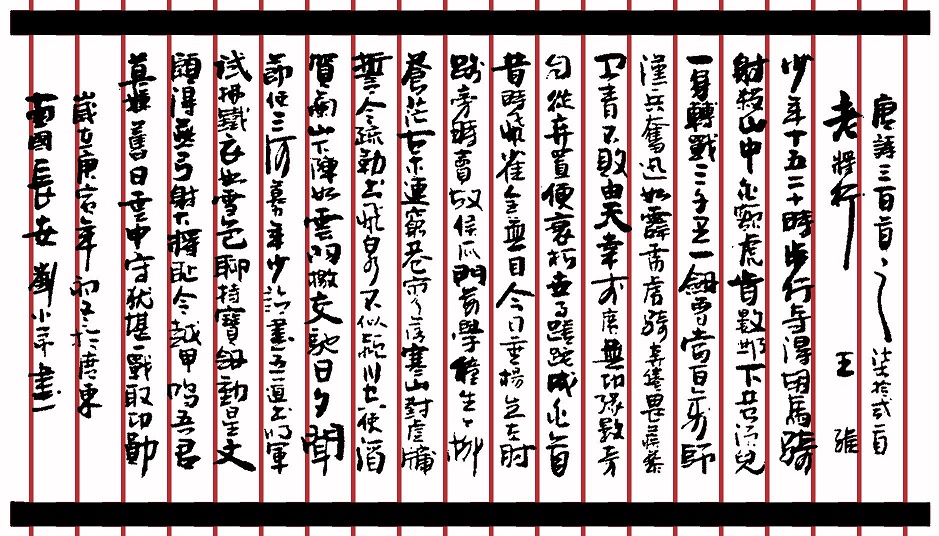 唐詩三百首之 柒拾弍首
老將行 王維
少年十五二十時步行奪得胡馬騎
射殺山中白額虎肯數鄴下黃鬚兒
一身轉戰三千里一劍曾當百萬師
漢兵奮迅如霹靂虜騎奔騰畏蒺藜
卫青不敗由天幸李廣無功緣數奇
自從弃置便衰朽世事蹉跎成白首
昔時飛雀全無目今日垂楊生左肘
路旁時賣故侯瓜門前學種先生柳
蒼茫古木連窮巷寥落寒山對虛牖
誓令疏勒出飛泉不似潁川空使酒
賀蘭山下陣如雲羽檄交馳日夕聞
節使三河募年少詔書五道出將軍
試拂鐵衣如雪色聊持寶劍動星文
願得燕弓射大將恥令越甲鳴吾君
莫嫌舊日雲中守猶堪一戰取功勳
歲在庚寅年 於廣東
南國長安 劉小平書